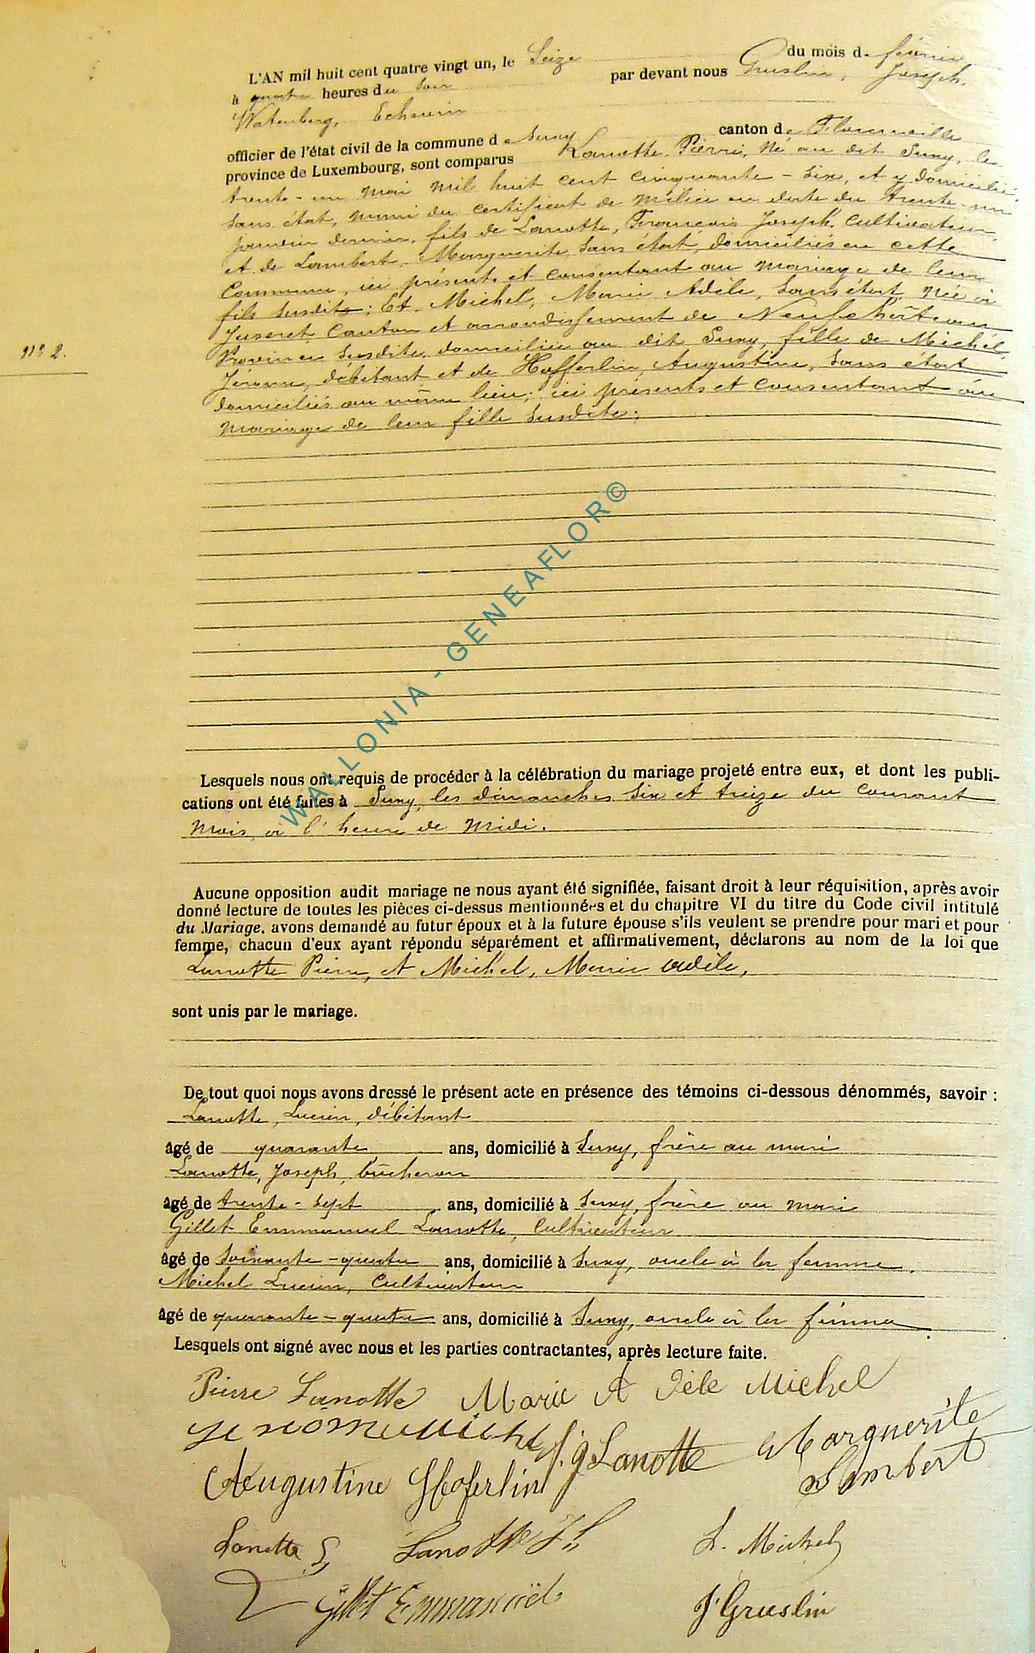 L'AN mil huit cent quatre vingt un, le Seize du mois de février
à quatre heures du soir par devant nous Gruslin, Joseph,
Watenberg, Echevin
officier de l'état civil de la commune de Suny canton de Florenville
province de Luxembourg, sont comparus Lanotte, Pierre, Né au dit Suny, le
trente-un mai mil huit cent cinquante-six, et y domicilié
sans état, muni du certificat de milice en date du trente-un
janvier dernier, fils de Lanotte, François Joseph, cultivateur,
et de Lambert, Marguerite, sans état, domiciliés en cette
Commune, ici présents et consentant au mariage de leur
fils susdit; Et Michel, Marie Adèle, Sans état, née à
Juseret Canton et arrondissement de Neufchâteau
Province susdite, domiciliée au dit Suny, fille de Michel,
Jérome, débitant et de Hofferlin, Augustine, sans état
domiciliés au même lieu; ici présents et consentant au
mariage de leur fille susdite:
n° 2.
WALLONIA - GENEAFLOR©
Lesquels nous ont requis de procéder à la célébration du mariage projeté entre eux, et dont les publi-
cations ont été faites à Suny, les dimanches six et treize du courant
mois, à l'heure de midi.
Aucune opposition audit mariage ne nous ayant été signifiée, faisant droit à leur réquisition, après avoir
donné lecture de toutes les pièces ci-dessus mentionnées et du chapitre VI du titre du Code civil intitulé
du Mariage, avons demandé au futur époux et à la future épouse s'ils veulent se prendre pour mari et pour
femme, chacun d'eux ayant répondu séparément et affirmativement, déclarons au nom de la loi que
Lanotte Pierre, et Michel, Marie Adèle,
sont unis par le mariage.
De tout quoi nous avons dressé le présent acte en présence des témoins ci-dessous dénommés, savoir :
Lanotte, Lucien, débitant
âgé de quarante ans, domicilié à Suny, frère au mari
Lanotte, Joseph, bûcheron
âgé de trente-sept ans, domicilié à Suny, frère au mari
Gillet Emmanuel Lanotte, Cultivateur
âgé de soixante-quatre ans, domicilié à Suny, oncle à la femme.
Michel Lucien, Cultivateur
âgé de quarante-quatre ans, domicilié à Suny, oncle à la femme
Lesquels ont signé avec nous et les parties contractantes, après lecture faite.
Pierre Lanotte Marie Adèle Michel
Jerome Michel f. j Lanotte Marguerite
Augustine Hoferlin Lambert
Lanotte L Lanotte J L. Michel
Gillet Emmanuël J Gruslin